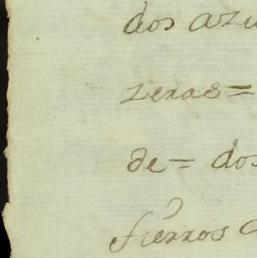 dos azu
zenas =
de = dos
fierros